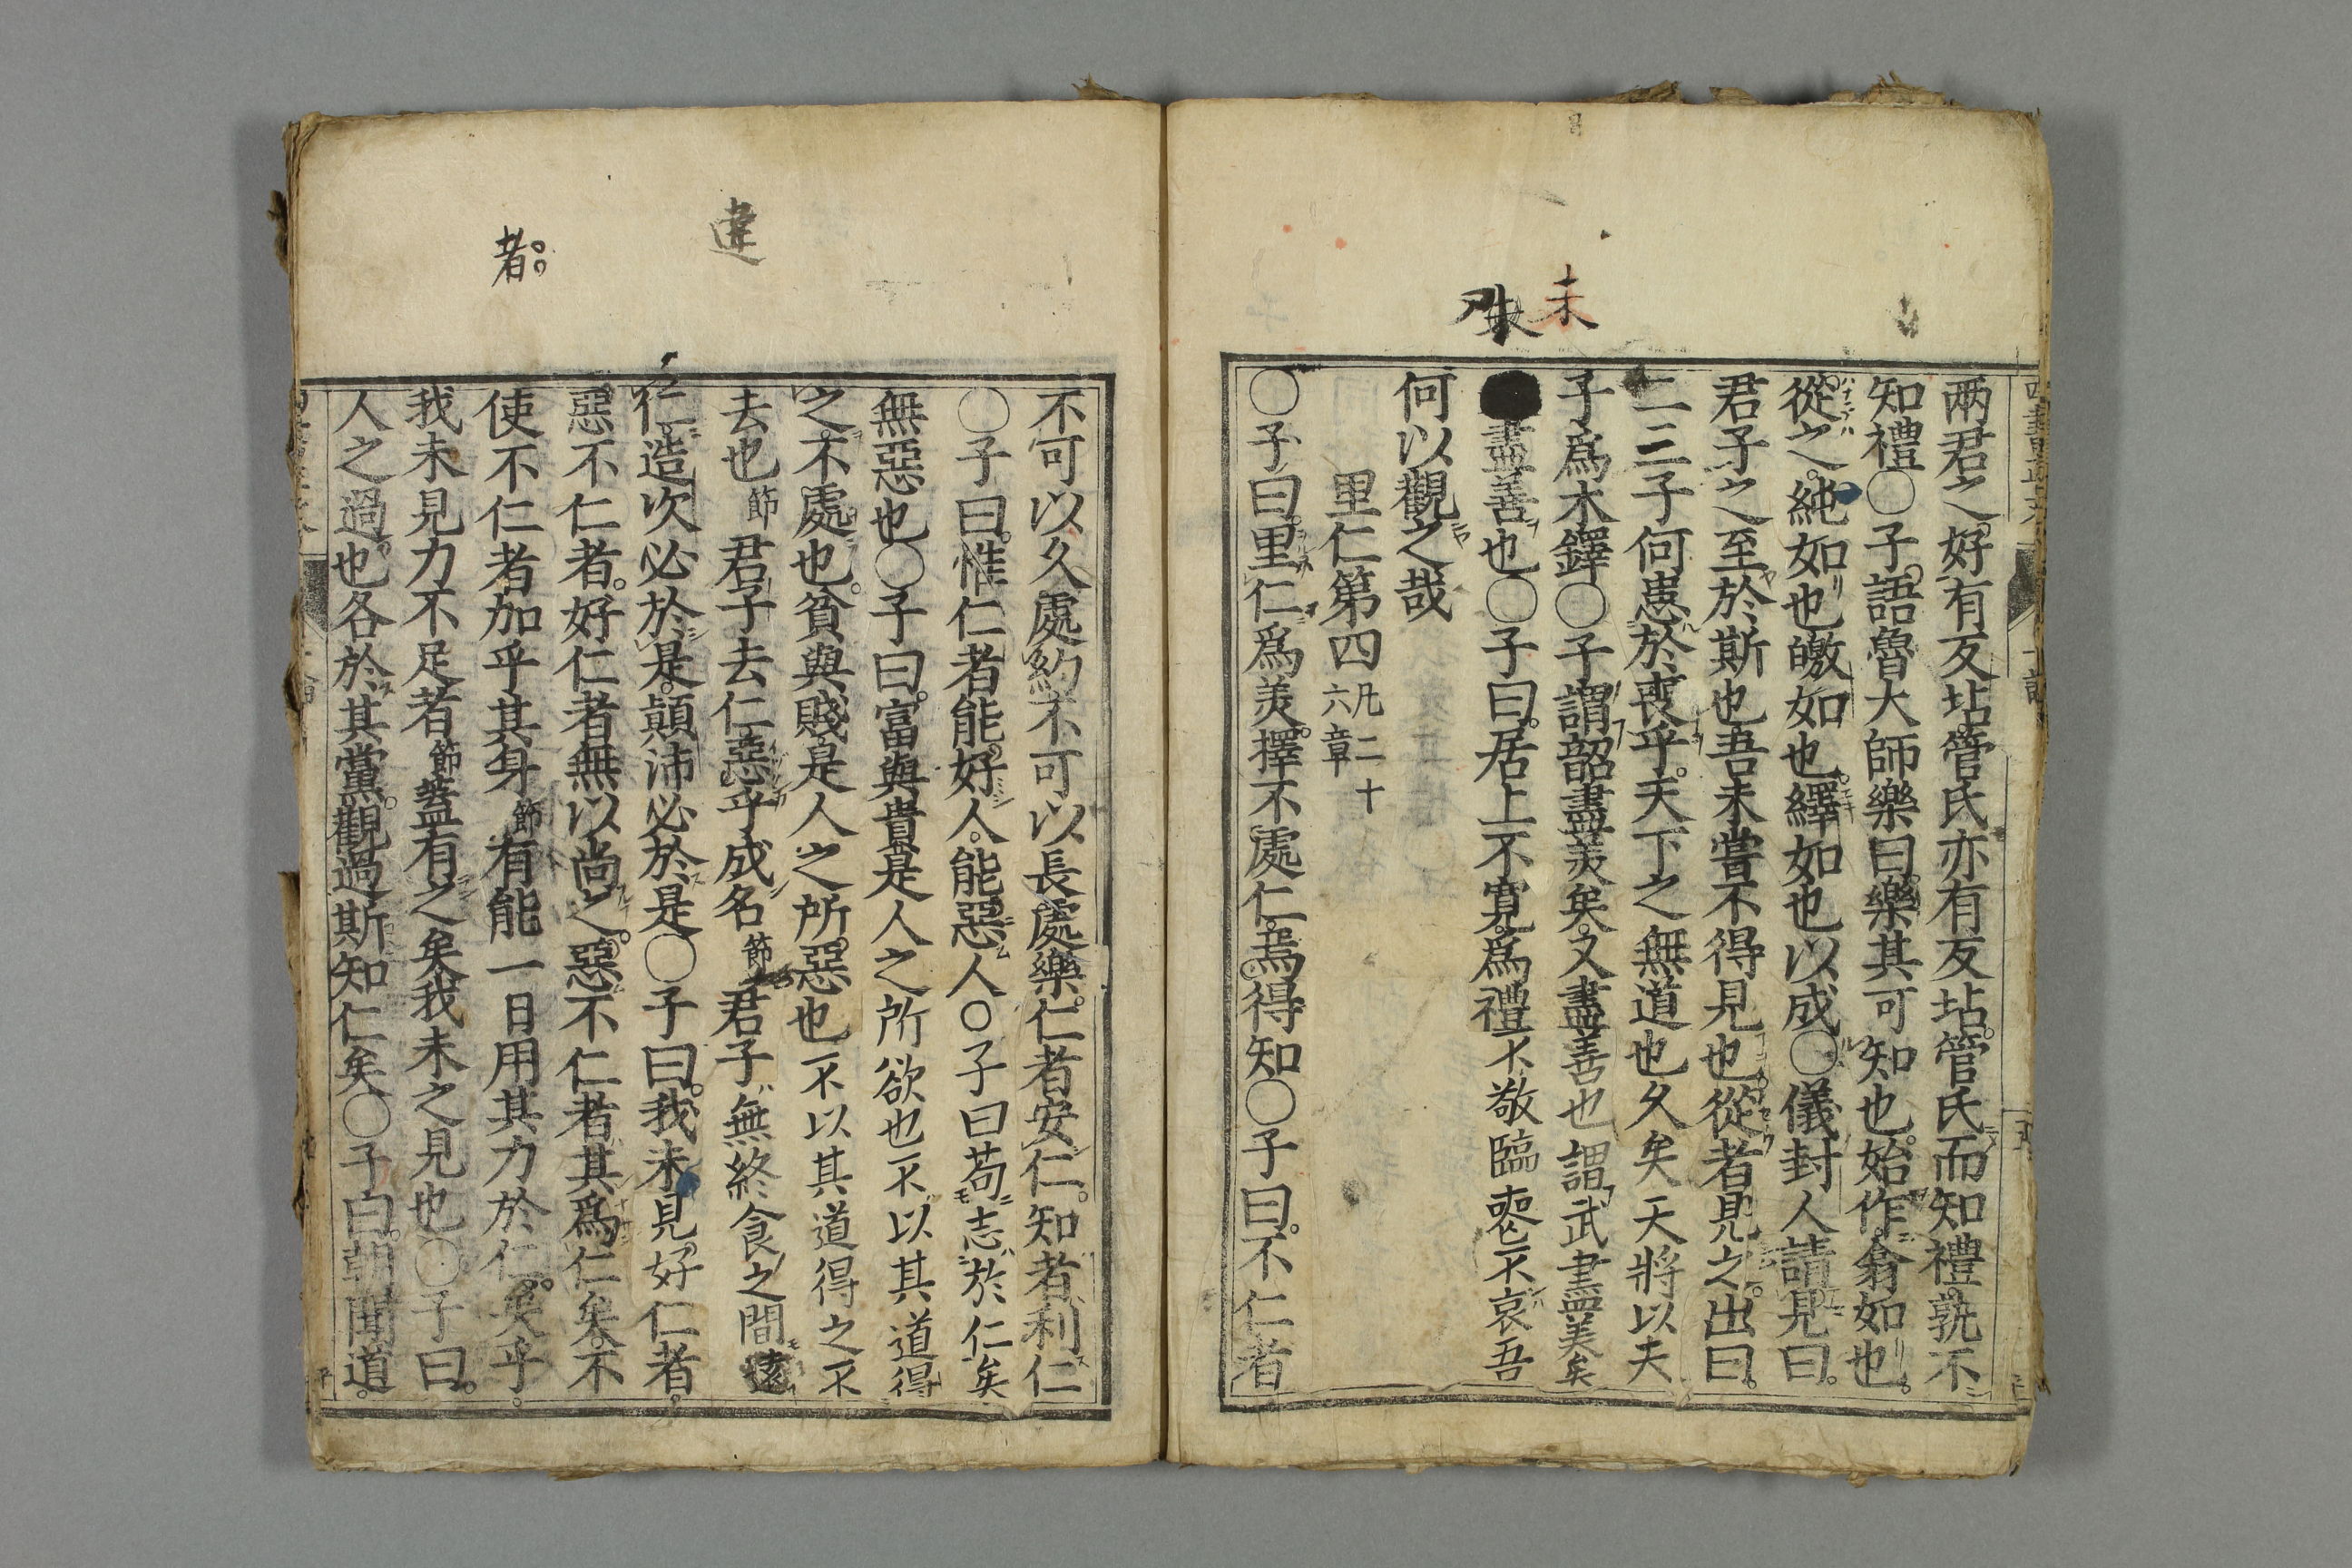 未
兩君之好有反坫管氏亦有反坫管氏而知禮孰不
知禮○子語魯大師樂曰樂其可知也始作翕如也
從之純如也皦如也繹如也以成○儀封人請見曰
君子之至於斯也吾未嘗不得見也從者見之出曰
二三子何患於喪乎天下之無道也久矣天將以夫
子爲木鐸○子謂韶盡美矣又盡善也謂武盡美矣
盡善也○子曰居上不寬爲禮不敬臨喪不哀吾
何以觀之哉
里仁第四 凡二十六章
○子曰里仁爲美擇不處仁焉得知○子曰不仁者
違
者
不可以久處約不可以長處樂仁者安仁知者利仁
○子曰惟仁者能好人能惡人○子曰苟志於仁矣
無惡也○子曰富與貴是人之所欲也不以其道得
之不處也貧與賤是人之所惡也不以其道得之不
去也節君子去仁惡乎成名節君子無終食之間違
仁造次必於是顚沛必於是○子曰我未見好仁者
惡不仁者好仁者無以尚之惡不仁者其爲仁矣不
使不仁者加乎其身節有能一日用其力於仁矣乎
我未見力不足者節蓋有之矣我未之見也○子曰
人之過也各於其黨觀過斯知仁矣○子曰朝聞道